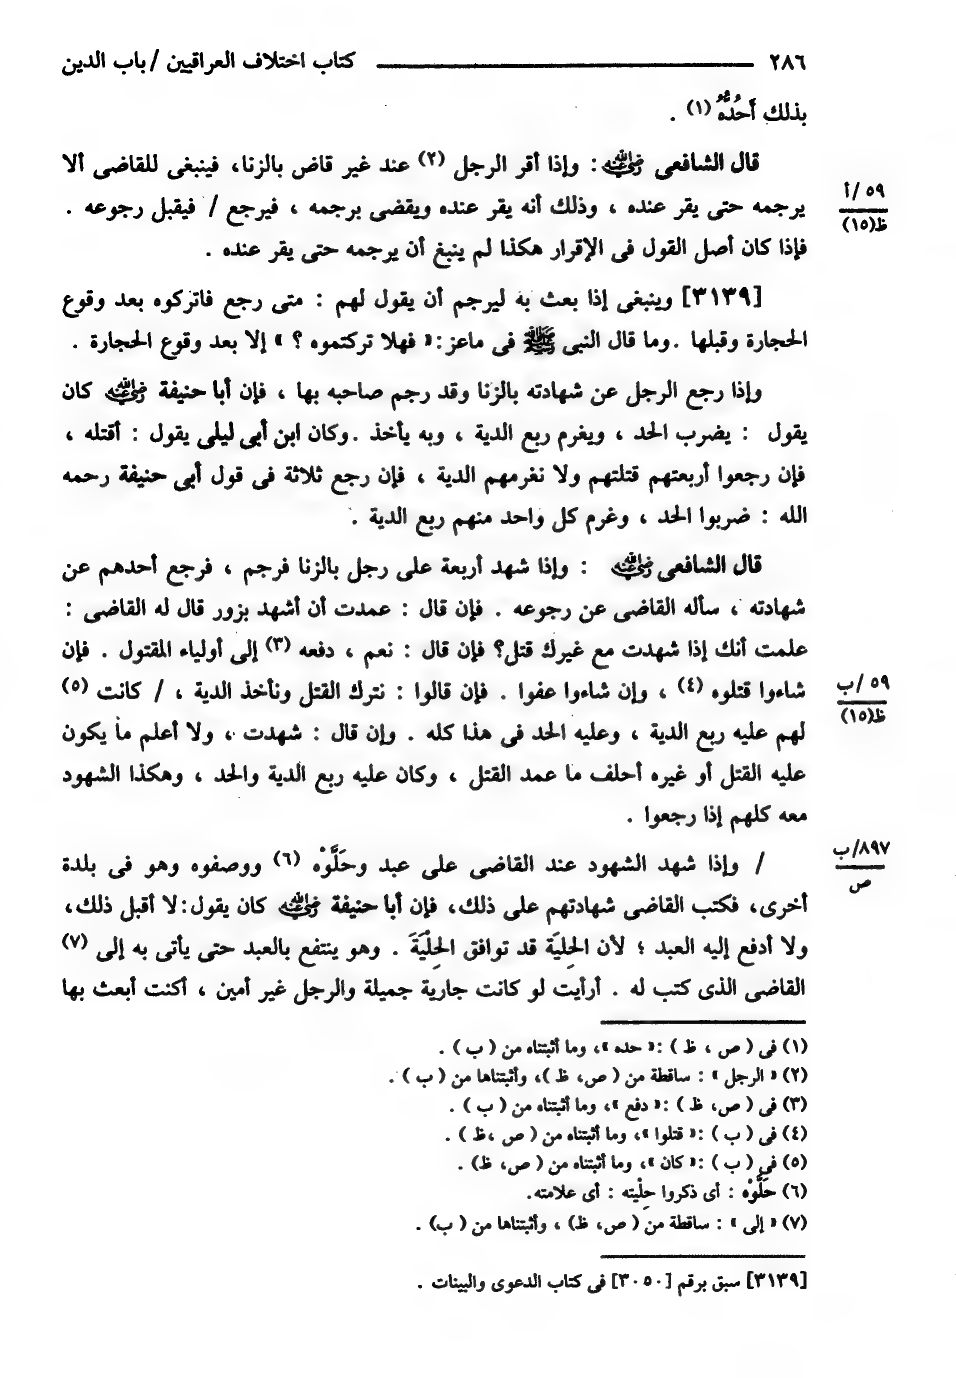 ٢٨٦ كتاب اختلاف العراقيين / باب الدين
بذلك أَحُدُّهُ (١) .
قال الشافعى رضي الله عنه : وإذا أقر الرجل (٢) عند غير قاض بالزنا، فينبغى للقاضى ألا
٥٩/أ
يرجمه حتى يقر عنده ، وذلك أنه يقر عنده ويقضى برجمه ، فيرجع / فيقبل رجوعه .
ظ(١٥)
فإذا كان أصل القول فى الإقرار هكذا لم ينبغ أن يرجمه حتى يقر عنده .
[٣١٣٩] وينبغى إذا بعث به ليرجم أن يقول لهم : متى رجع فاتركوه بعد وقوع
الحجارة وقبلها . وما قال النبى ﷺ فى ماعز : « فهلا تركتموه ؟ » إلا بعد وقوع الحجارة .
وإذا رجع الرجل عن شهادته بالزنا وقد رجم صاحبه بها ، فإن أبا حنيفة رضي الله عنه كان
يقول : يضرب الحد ، ويغرم ربع الدية ، وبه يأخذ . وكان ابن أبى ليلى يقول : أقتله ،
فإن رجعوا أربعتهم قتلتهم ولا نغرمهم الدية ، فإن رجع ثلاثة فى قول أبى حنيفة رحمه
الله : ضربوا الحد ، وغرم كل واحد منهم ربع الدية .
قال الشافعى رضي الله عنه : وإذا شهد أربعة على رجل بالزنا فرجم ، فرجع أحدهم عن
شهادته ، سأله القاضى عن رجوعه . فإن قال : عمدت أن أشهد بزور قال له القاضى :
علمت أنك إذا شهدت مع غيرك قتل؟ فإن قال : نعم ، دفعه (٣) إلى أولياء المقتول . فإن
٥٩/ب
شاءوا قتلوه (٤) ، وإن شاءوا عفوا . فإن قالوا : نترك القتل ونأخذ الدية ، / كانت (٥)
ظ(١٥)
لهم عليه ربع الدية ، وعليه الحد فى هذا كله . وإن قال : شهدت ، ولا أعلم ما يكون
عليه القتل أو غيره أحلف ما عمد القتل ، وكان عليه ربع الدية والحد ، وهكذا الشهود
معه كلهم إذا رجعوا .
٨٩٧/ب
ص
/ وإذا شهد الشهود عند القاضى على عبد وحَلَّوْه (٦) ووصفوه وهو فى بلدة
أخرى، فكتب القاضى شهادتهم على ذلك، فإن أبا حنيفة رضي الله عنه كان يقول: لا أقبل ذلك،
ولا أدفع إليه العبد ؛ لأن الحِليَة قد توافق الحِلْيَةَ . وهو ينتفع بالعبد حتى يأتى به إلى (٧)
القاضى الذى كتب له . أرأيت لو كانت جارية جميلة والرجل غير أمين ، أكنت أبعث بها
(١) فى ( ص ، ظ ) : « حده »، وما أثبتناه من ( ب ) .
(٢) « الرجل » : ساقطة من ( ص، ظ )، وأثبتناها من ( ب ) .
(٣) فى ( ص، ظ ) : « دفع »، وما أثبتناه من ( ب ) .
(٤) فى ( ب ) : « قتلوا »، وما أثبتناه من ( ص ،ظ ) .
(٥) فى ( ب ) : « كان »، وما أثبتناه من ( ص، ظ) .
(٦) حَلَّوْه : أى ذكروا حِلْيته : أى علامته.
(٧) « إلى » : ساقطة من ( ص، ظ) ، وأثبتناها من ( ب) .
[٣١٣٩] سبق برقم [٣٠٥٠] فى كتاب الدعوى والبينات .